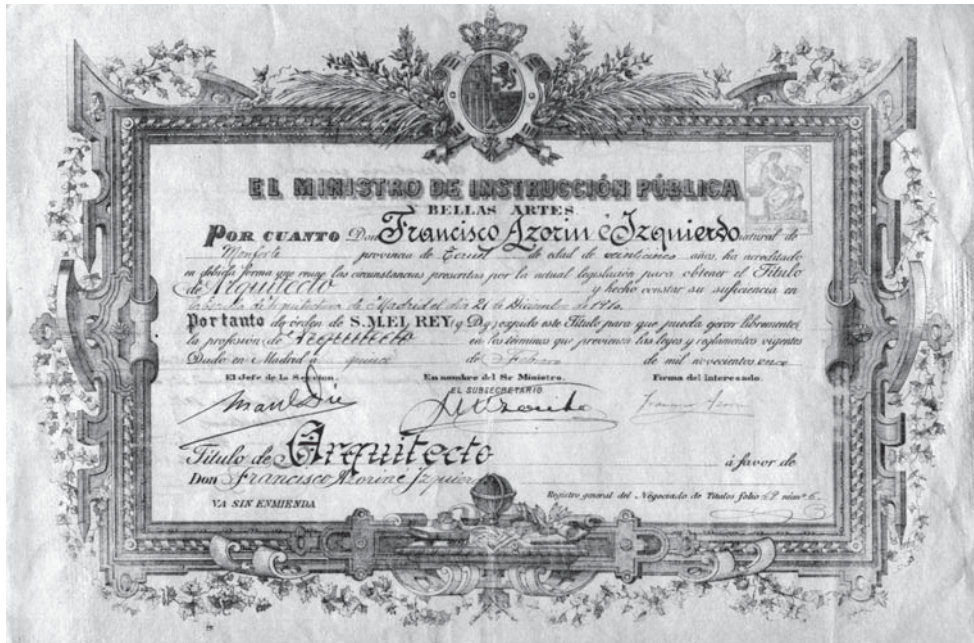 EL MINISTRO DE INSTRUCCIÓN PÚBLICA
Y BELLAS ARTES
POR CUANTO Don Francisco Azorin é Izquierdo natural de
Monforte provincia de Teruel de edad de veinticinco años, ha acreditado
en debida forma que reune las circunstancias prescritas por la actual legislación para obtener el Título
de Arquitecto y hecho constar su suficiencia en
la Escuela de Arquitectura de Madrid el dia 21 de Diciembre de 1910.
Por tanto de órden de S. M. EL REY (q. D. g.) expido este Título para que pueda ejercer libremente
la profesión de Arquitecto en los términos que previenen las leyes y reglamentos vigentes
Dado en Madrid á quince de Febrero de mil novecientos once
El Jefe de la Sección. En nombre del Sr Ministro. Firma del interesado.
EL SUBSECRETARIO
Francisco Azorin
Título de Arquitecto á favor de
Don Francisco Azorin é Izquierdo
VA SIN ENMIENDA Registro general del Negociado de Títulos folio núm.º 6.